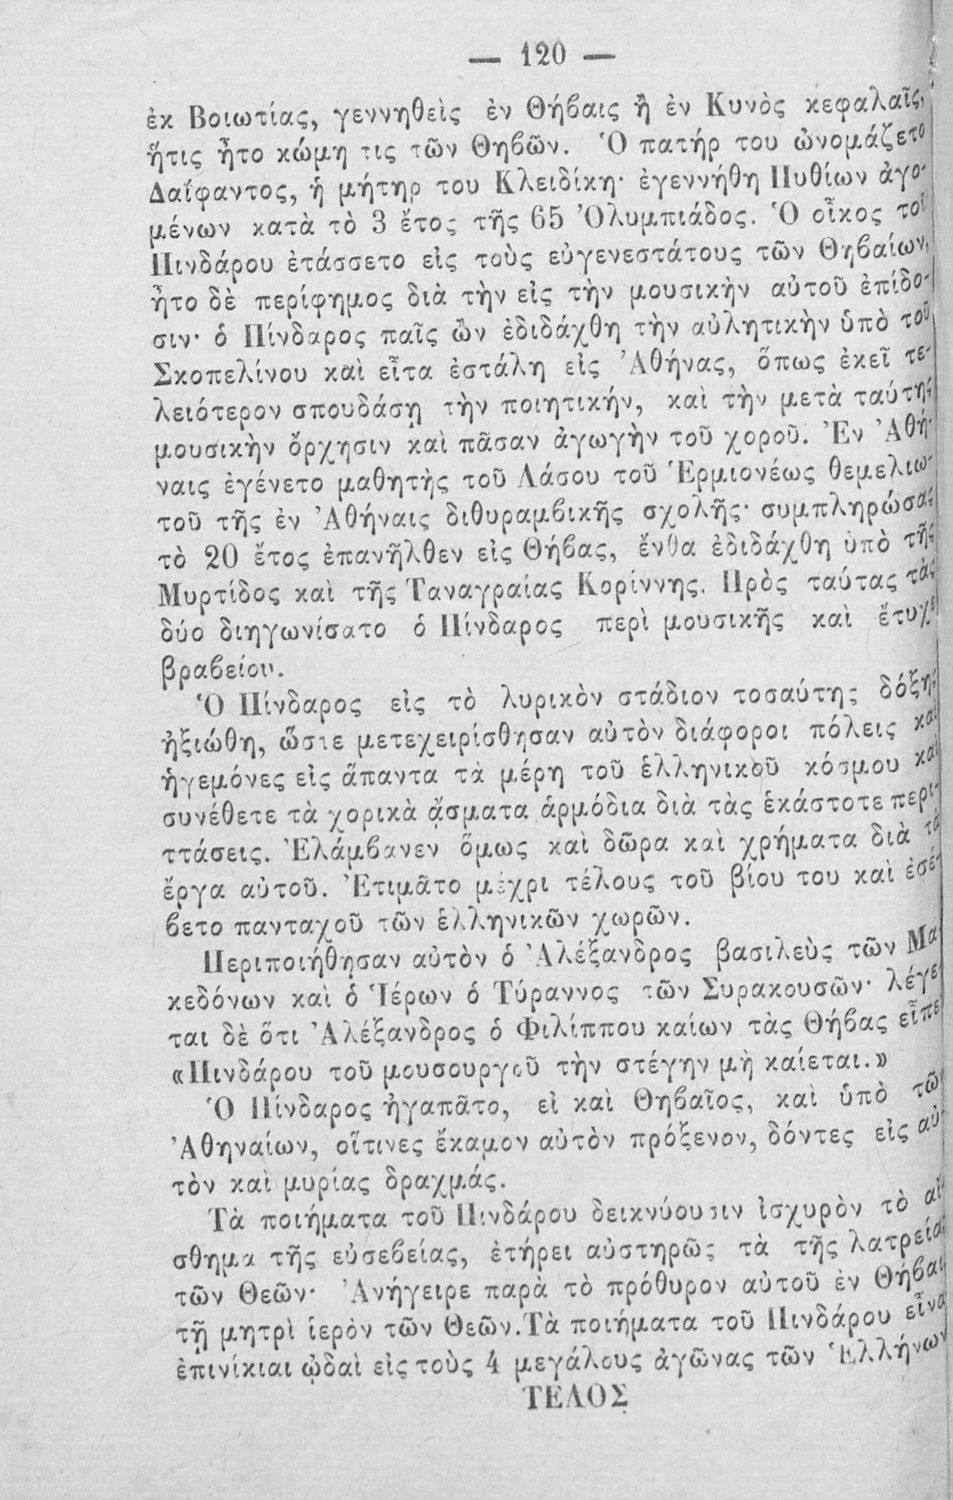 — 120 —
ἐκ Βοιωτίας, γεννηθεὶς ἐν Θήβαις ἢ ἐν Κυνὸς κεφαλαῖς,
ἥτις ἦτο κώμη τις τῶν Θηβῶν. Ὁ πατήρ του ὠνομάζετο
Δαΐφαντος, ἡ μήτηρ του Κλειδίκη· ἐγεννήθη Πυθίων ἀγο-
μένων κατὰ τὸ 3 ἔτος τῆς 65 Ὀλυμπιάδος. Ὁ οἶκος τοῦ
Πινδάρου ἐτάσσετο εἰς τοὺς εὐγενεστάτους τῶν Θηβαίων,
ἦτο δὲ περίφημος διὰ τὴν εἰς τὴν μουσικὴν αὐτοῦ ἐπίδο-
σιν· ὁ Πίνδαρος παῖς ὢν ἐδιδάχθη τὴν αὐλητικὴν ὑπὸ τοῦ
Σκοπελίνου καὶ εἶτα ἐστάλη εἰς Ἀθήνας, ὅπως ἐκεῖ τε-
λειότερον σπουδάσῃ τὴν ποιητικήν, καὶ τὴν μετὰ ταύτης
μουσικὴν ὄρχησιν καὶ πᾶσαν ἀγωγὴν τοῦ χοροῦ. Ἐν Ἀθή-
ναις ἐγένετο μαθητὴς τοῦ Λάσου τοῦ Ἑρμιονέως θεμελιω-
τοῦ τῆς ἐν Ἀθήναις διθυραμβικῆς σχολῆς· συμπληρώσας
τὸ 20 ἔτος ἐπανῆλθεν εἰς Θήβας, ἔνθα ἐδιδάχθη ὑπὸ τῆς
Μυρτίδος καὶ τῆς Ταναγραίας Κορίννης. Πρὸς ταύτας τὰς
δύο διηγωνίσατο ὁ Πίνδαρος περὶ μουσικῆς καὶ ἔτυχε
βραβείου.
Ὁ Πίνδαρος εἰς τὸ λυρικὸν στάδιον τοσαύτης δόξης
ἠξιώθη, ὥστε μετεχειρίσθησαν αὐτὸν διάφοροι πόλεις καὶ
ἡγεμόνες εἰς ἅπαντα τὰ μέρη τοῦ ἑλληνικοῦ κόσμου καὶ
συνέθετε τὰ χορικὰ ᾄσματα ἁρμόδια διὰ τὰς ἑκάστοτε περι-
ττάσεις. Ἐλάμβανεν ὅμως καὶ δῶρα καὶ χρήματα διὰ τὰ
ἔργα αὐτοῦ. Ἐτιμᾶτο μέχρι τέλους τοῦ βίου του καὶ ἐσέ-
βετο πανταχοῦ τῶν ἑλληνικῶν χωρῶν.
Περιποιήθησαν αὐτὸν ὁ Ἀλέξανδρος βασιλεὺς τῶν Μα-
κεδόνων καὶ ὁ Ἱέρων ὁ Τύραννος τῶν Συρακουσῶν· λέγε-
ται δὲ ὅτι Ἀλέξανδρος ὁ Φιλίππου καίων τὰς Θήβας εἶπε
«Πινδάρου τοῦ μουσουργοῦ τὴν στέγην μὴ καίεται.»
Ὁ Πίνδαρος ἠγαπᾶτο, εἰ καὶ Θηβαῖος, καὶ ὑπὸ τῶν
Ἀθηναίων, οἵτινες ἔκαμον αὐτὸν πρόξενον, δόντες εἰς αὐ-
τὸν καὶ μυρίας δραχμάς.
Τὰ ποιήματα τοῦ Πινδάρου δεικνύουσιν ἰσχυρὸν τὸ αἴ-
σθημα τῆς εὐσεβείας, ἐτήρει αὐστηρῶς τὰ τῆς λατρείας
τῶν Θεῶν· Ἀνήγειρε παρὰ τὸ πρόθυρον αὐτοῦ ἐν Θήβαι-
τῇ μητρὶ ἱερὸν τῶν Θεῶν. Τὰ ποιήματα τοῦ Πινδάρου εἶνα
ἐπινίκιαι ᾠδαὶ εἰς τοὺς 4 μεγάλους ἀγῶνας τῶν Ἑλλήνων
ΤΕΛΟΣ